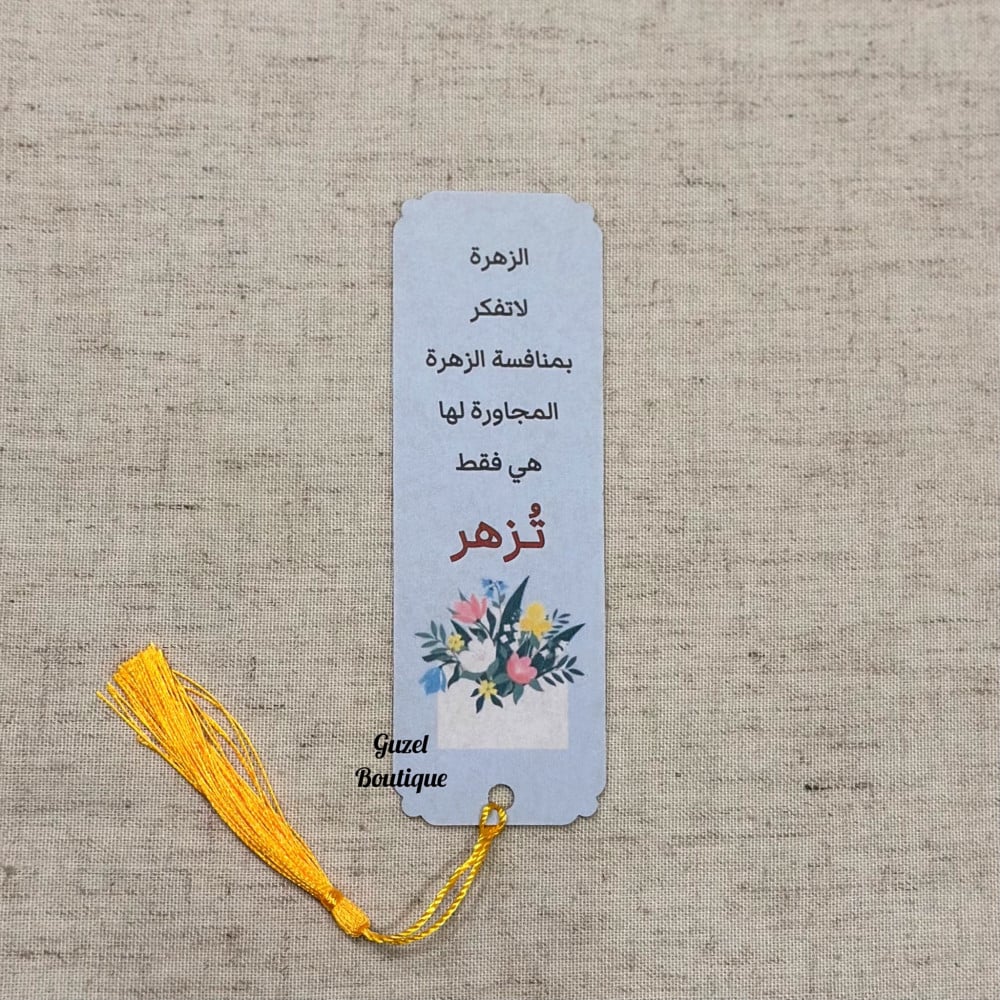 الزهرة
لاتفكر
بمنافسة الزهرة
المجاورة لها
هي فقط
تُزهر
Guzel
Boutique